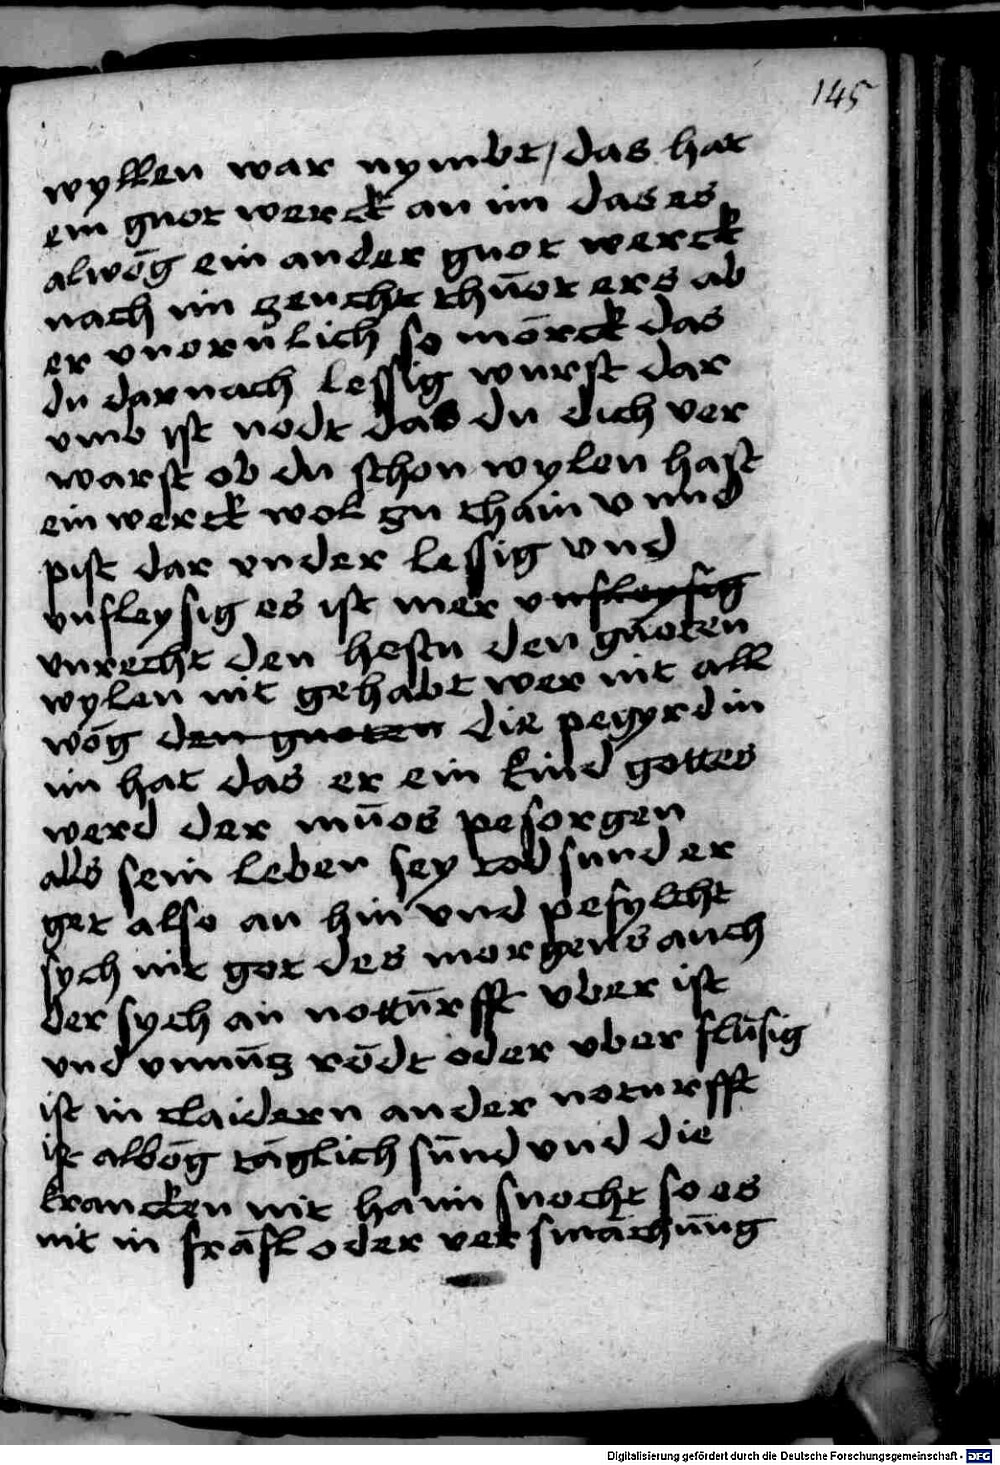 145
wyllen war nymbt / das hat
ein guot werck an im das es
alwōg ein ander guot werck
nach im zeucht thūot ers ab
er vnornlich so mōrck das
du darnach lessig wurst dar
vmb ist nodt das du dich ver
warst ob du schon wylen hast
ein werck wol zu thain vnnd
pist dar vnder lessig vnd
vnfleysig es ist mer vnfleysig
vnrecht den hestu den gūoten
wylen nit gehabt wer nit all
wōg den guoten die pegyrd in
im hat das er ein kind gottes
werd der mūos pesorgen
alls sein leben sey tod sund er
get also an hin vnd pefylcht
sych nit got des morgens auch
der sych an nottūrfft vber ist
vnd vnnūtz rōdt oder vber flūsig
ist in claidern an der noturfft
ist albōg tāglich sūnd vnd die
krancken nit haim suocht so es
nit in frāfl oder ver smāchūng
Digitalisierung gefördert durch die Deutsche Forschungsgemeinschaft - DFG